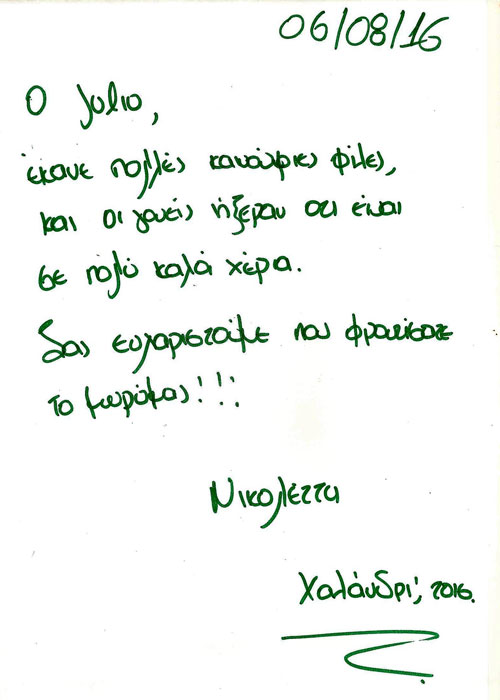 06/08/16
Ο Julio,
έκανε πολλές καινούριες φίλες,
και οι γονείς ήξεραν ότι είναι
σε πολύ καλά χέρια.
Σας ευχαριστούμε που φροντίσατε
το μωρό μας!!!
Νικολέττα
Χαλάνδρι, 2016.